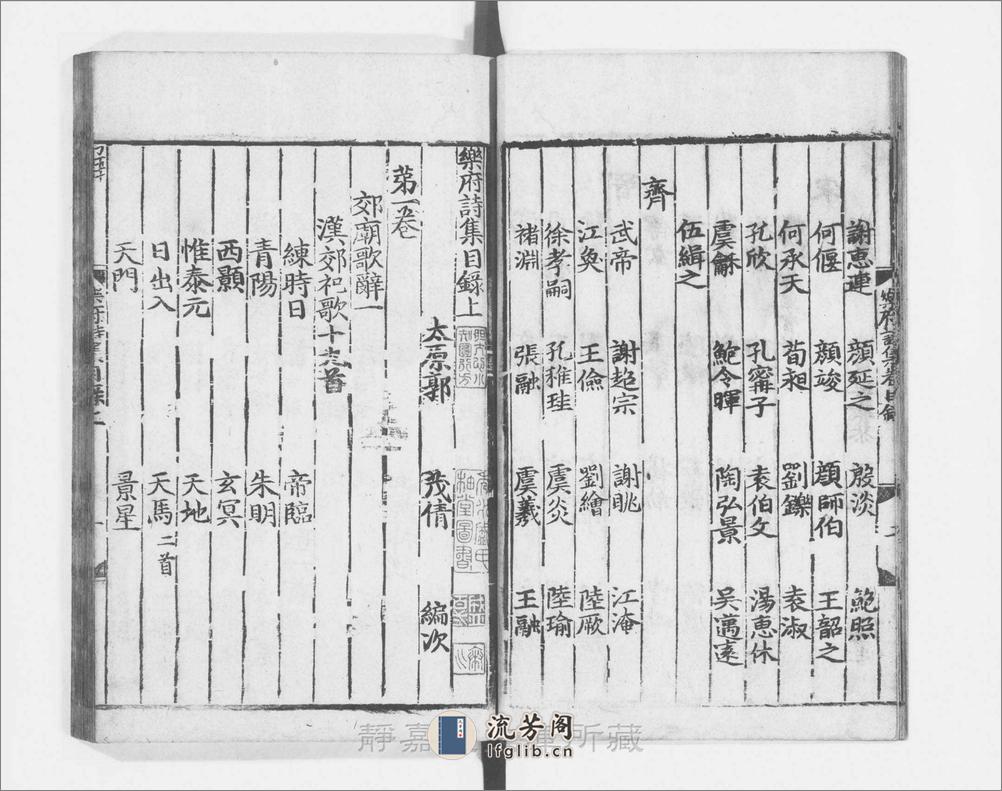 謝惠連 顔延之 殷淡 鮑照
何偃 顔竣 顔師伯 王韶之
何承天 荀昶 劉鑠 袁淑
孔欣 孔甯子 袁伯文 湯惠休
虞龢 鮑令暉 陶弘景 吳邁遠
伍緝之
齊
武帝 謝超宗 謝眺 江淹
江奐 王儉 劉繪 陸厥
徐孝嗣 孔稚珪 虞炎 陸瑜
褚淵 張融 虞羲 王融
樂府詩集目錄上
太原郭 茂倩 編次
第一卷
郊廟歌辭一
漢郊祀歌十九首
練時日 帝臨
青陽 朱明
西顥 玄冥
惟泰元 天地
日出入 天馬二首
天門 景星
靜嘉 所藏
流芳阁
lfglib.cn